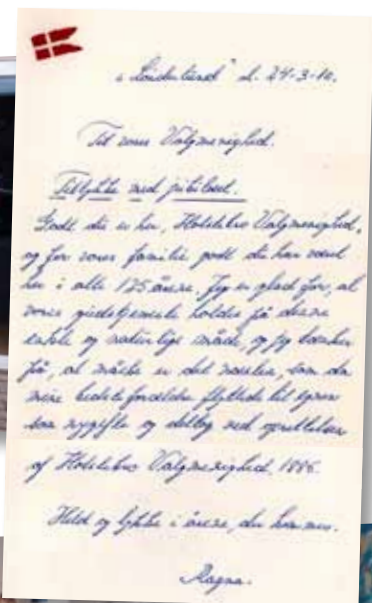 " d. 24-3-10.
Til vores Valgmenighed.
Tillykke med jubilæet.
Godt du er her, Holstebro Valgmenighed,
og for vores familie godt du har været
her i alle 125 årene. Jeg er glad for, at
vores gudstjeneste holdes på denne
enkle og naturlige måde, og jeg tænker
på, at måske er det næsten, som da
mine bedsteforældre flyttede til egnen
som nygifte og deltog ved oprettelsen
af Holstebro Valgmenighed, 1886.
Held og lykke i årene, der kommer.
Ragna.